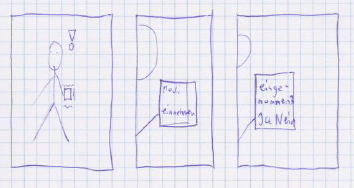 !
Medi
einnehmen
einge-
nommen?
Ja Nein